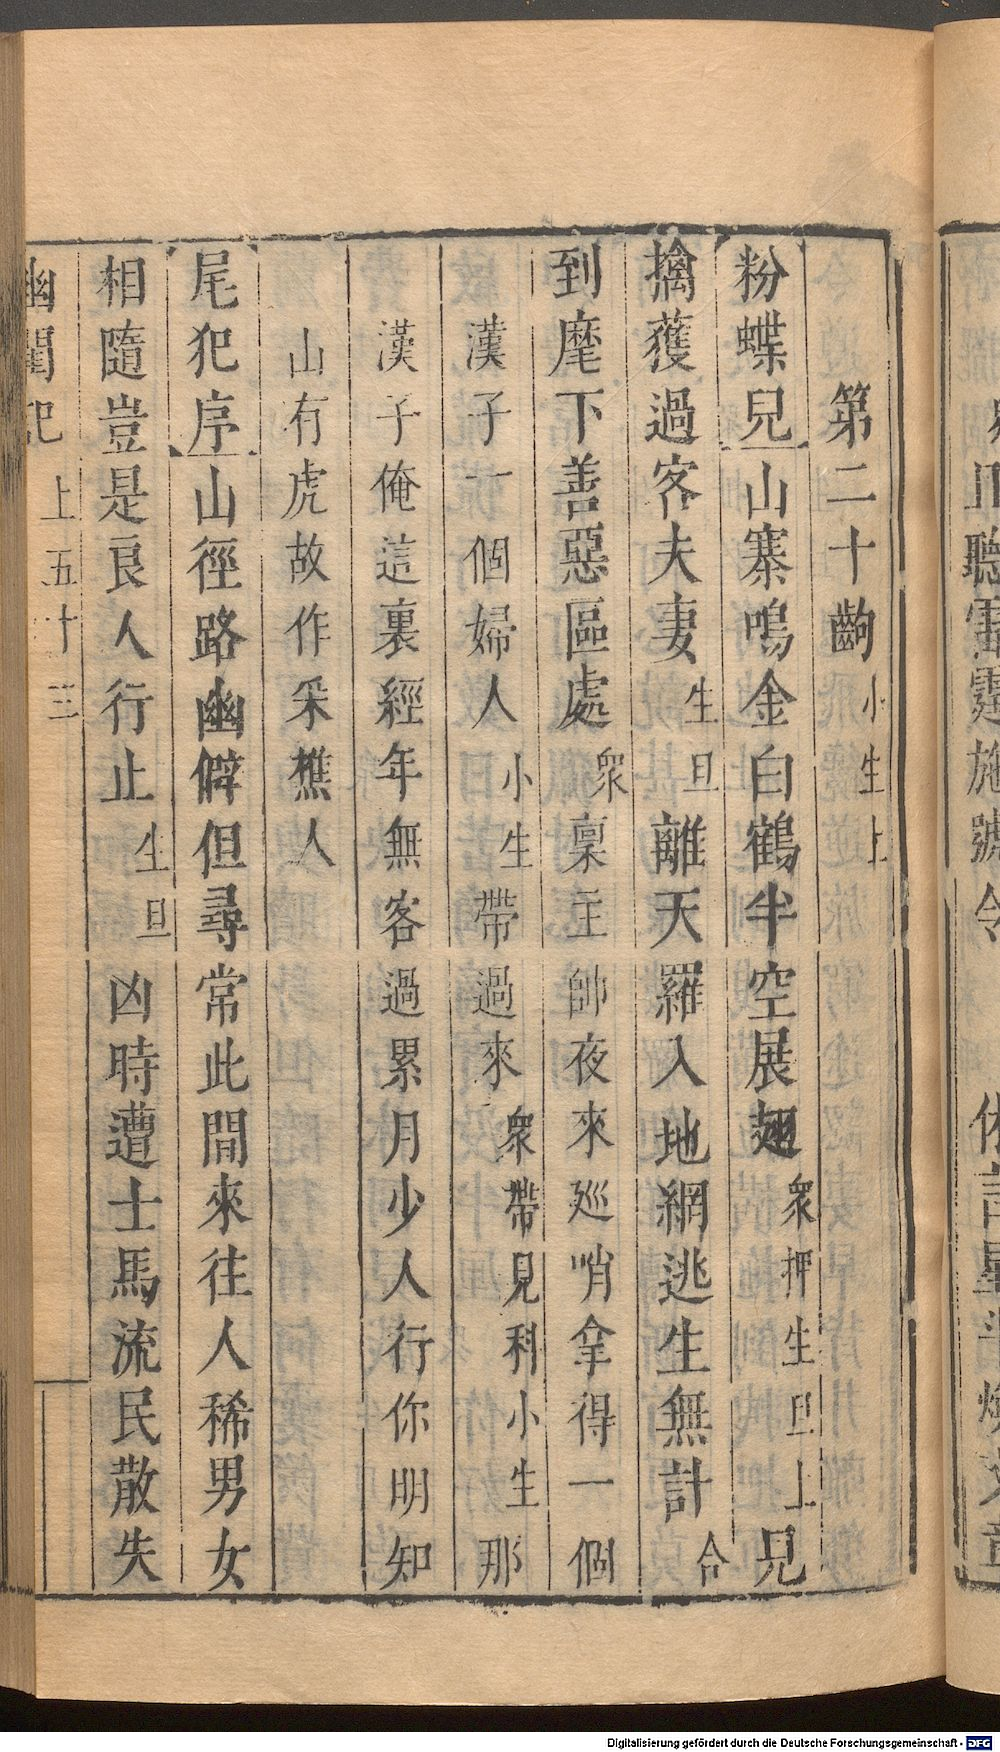 第二十齣小生上
粉蝶兒山寨鳴金白鶴半空展翅衆押生旦上兄
擒獲過客夫妻生旦離天羅入地網逃生無計合
到麾下善惡區處衆稟主帥夜來廵哨拿得一個
漢子一個婦人小生帶過來衆帶見科小生那
漢子俺這裏經年無客過累月少人行你明知
山有虎故作采樵人
尾犯序山徑路幽僻但尋常此間來往人稀男女
相隨豈是良人行止生旦凶時遭士馬流民散失
幽閨記 上五十三
聽 施號令
Digitalisierung gefördert durch die Deutsche Forschungsgemeinschaft - DFG